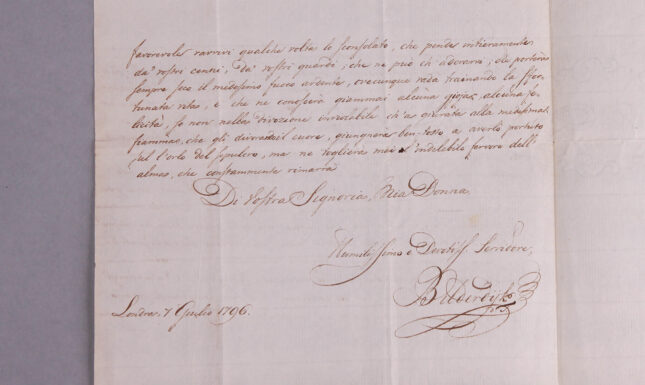 favorevole ravvivi qualche volta lo sconsolato, che pende intieramente
da' vostri cenni, da' vostri guardi, che ne può ch'adorarvi, che porterà
sempre seco il medesimo fuoco ardente, ovecunque vada trainando la sfor-
tunata vita, e che ne conoscerà giammai alcuna gioja, alcuna fe-
licità, se non nella divozione inviolabile ch'ha giurata alla medesima
fiamma, che gli divora il cuore, giungnerà ben-tosto a averlo portato
sul l'orlo del sepulcro, ma ne toglierà mai l'indelebile fervore dell'
alma, che constammente rimarrà
Di Vostra Signoria, Mia Donna,
Humilissimo e Devotiss Servidore,
Bilderdijk
Londra, 7 Giulio 1796.